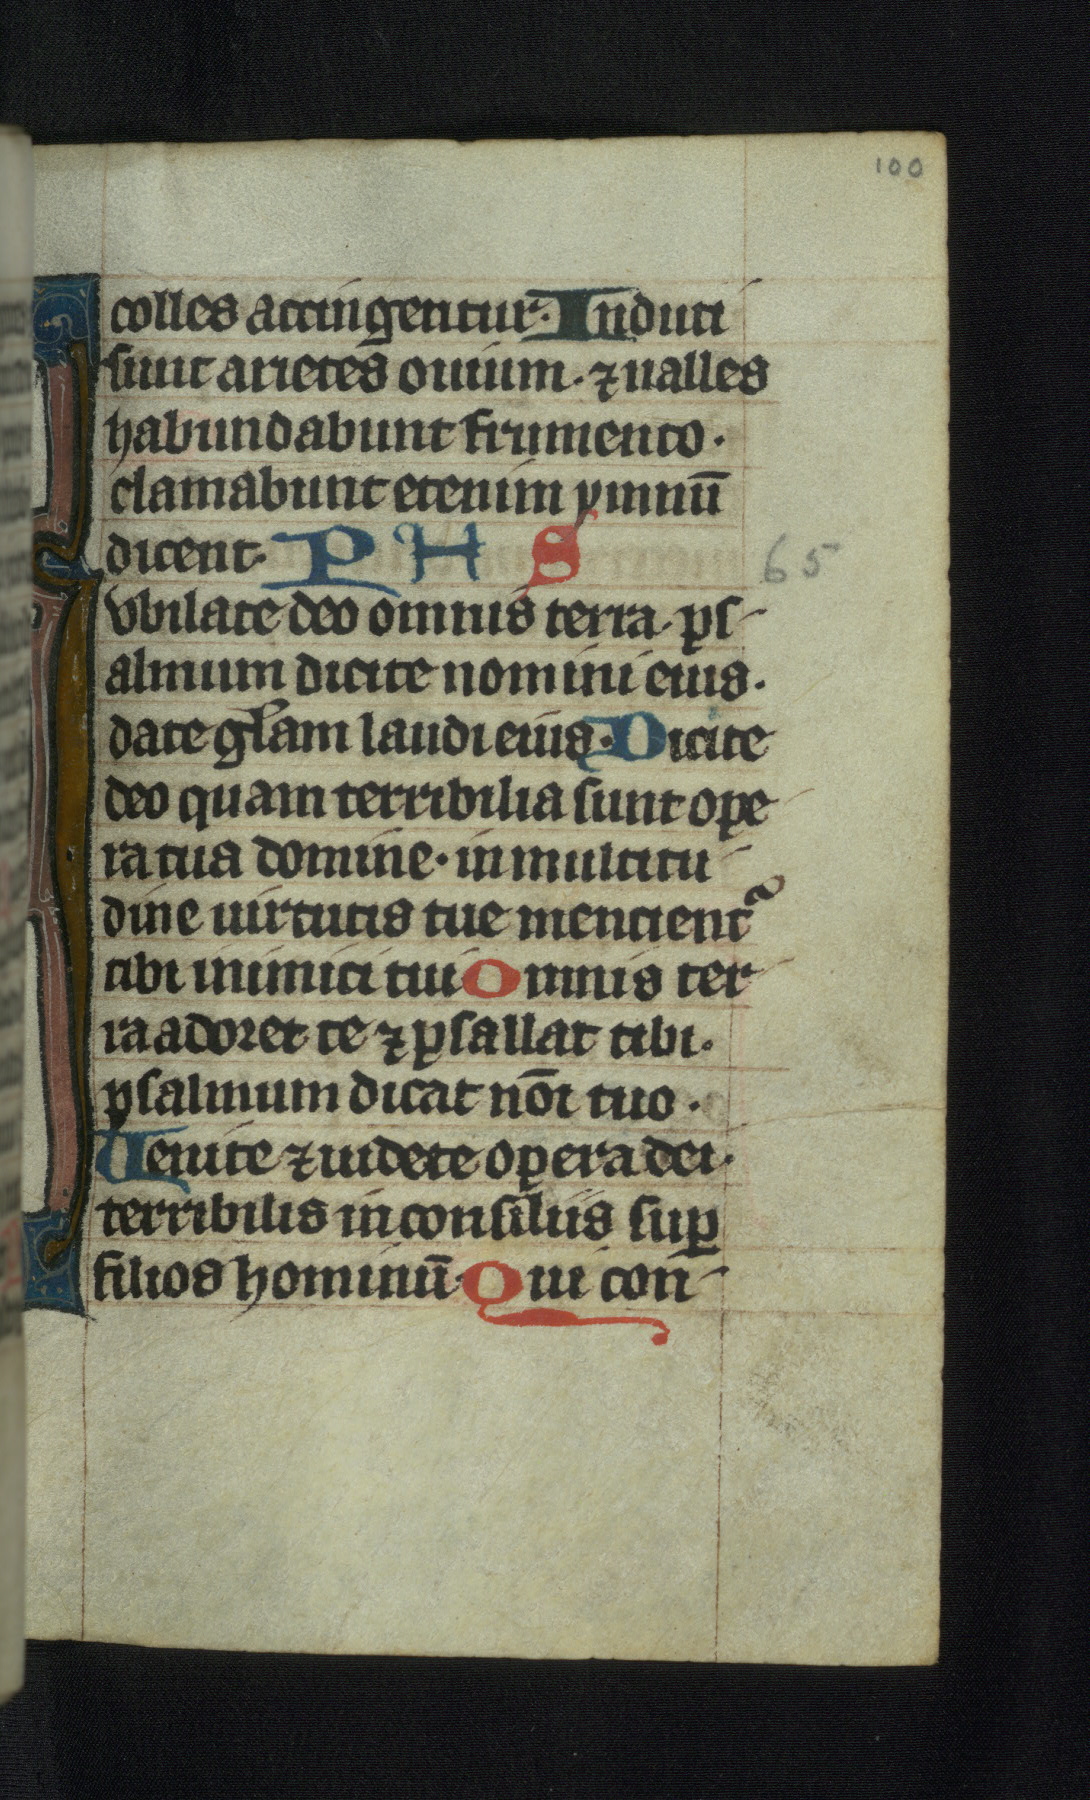 100
colles accingentur. Induti
sunt arietes ouium. ⁊ ualles
habundabunt frumento.
clamabunt etenim ymnū
dicent. P H S
65
Vbilate deo omnis terra. ps
almum dicite nomini eius.
date glam laudi eius. Dicite
deo quam terribilia sunt ope
ra tua domine. in multitu
dine uirtutis tue mentient᷑
tibi inimici tui Omnis ter
ra adoret te ⁊ psallat tibi.
psalmum dicat nōi tuo.
Venite ⁊ uidete opera dei.
terribilis in consiliis suꝑ
filios hominū. Qui con